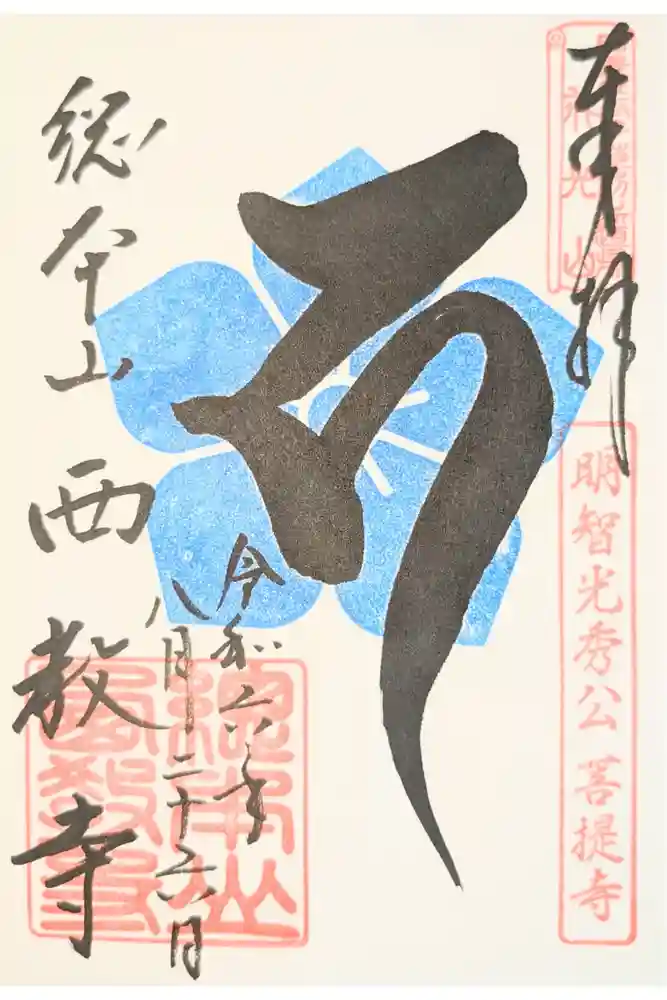 奉拝
明智光秀公 菩提寺
令和六年
八月二十六日
総本山 西教寺
總本山
西教寺